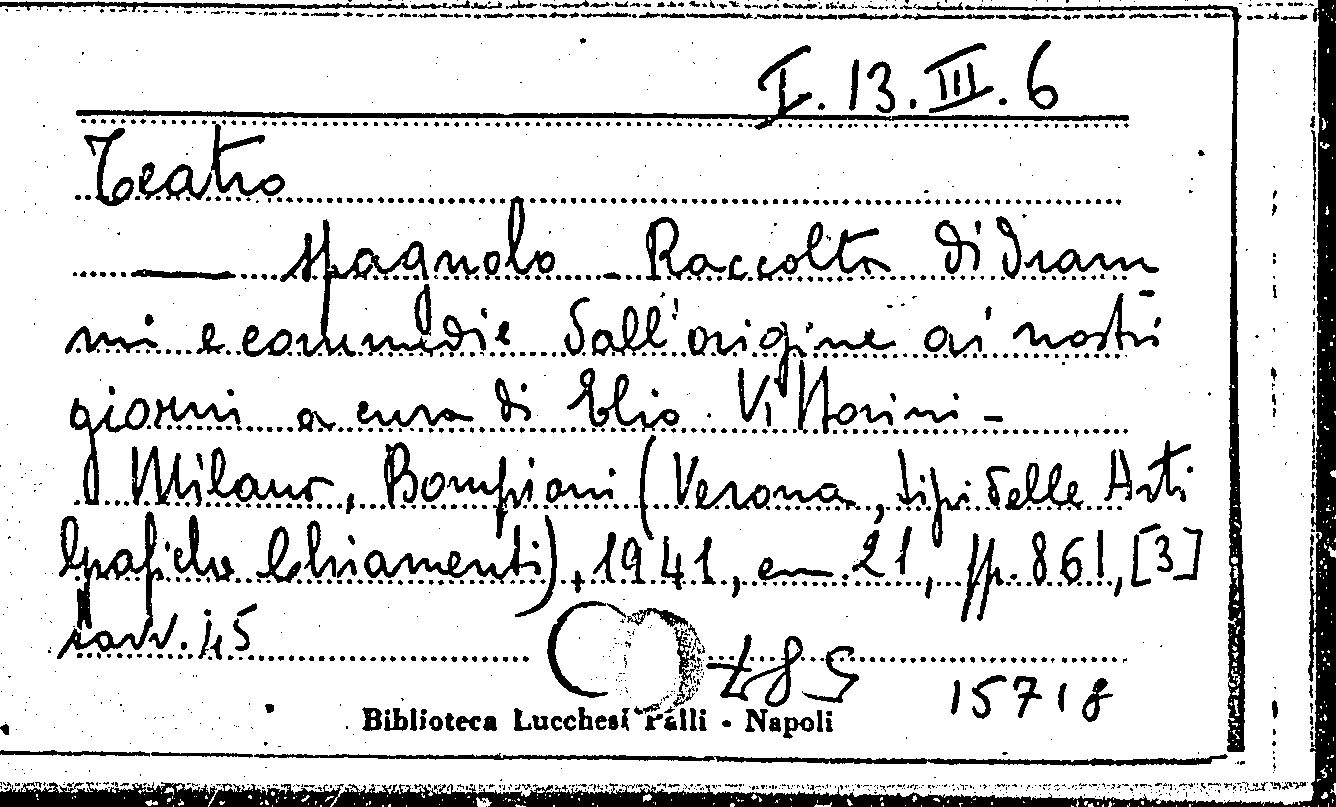 I. 13. III. 6
Teatro
— spagnolo - Raccolta di dram-
mi e commedie dall'origine ai nostri
giorni a cura di Elio Vittorini -
Milano, Bompiani (Verona, tipi delle Arti
Grafiche Chiamenti), 1941, cm. 21, pp. 861, [3]
tavv. 45
587 15718
Biblioteca Lucchesi Palli - Napoli